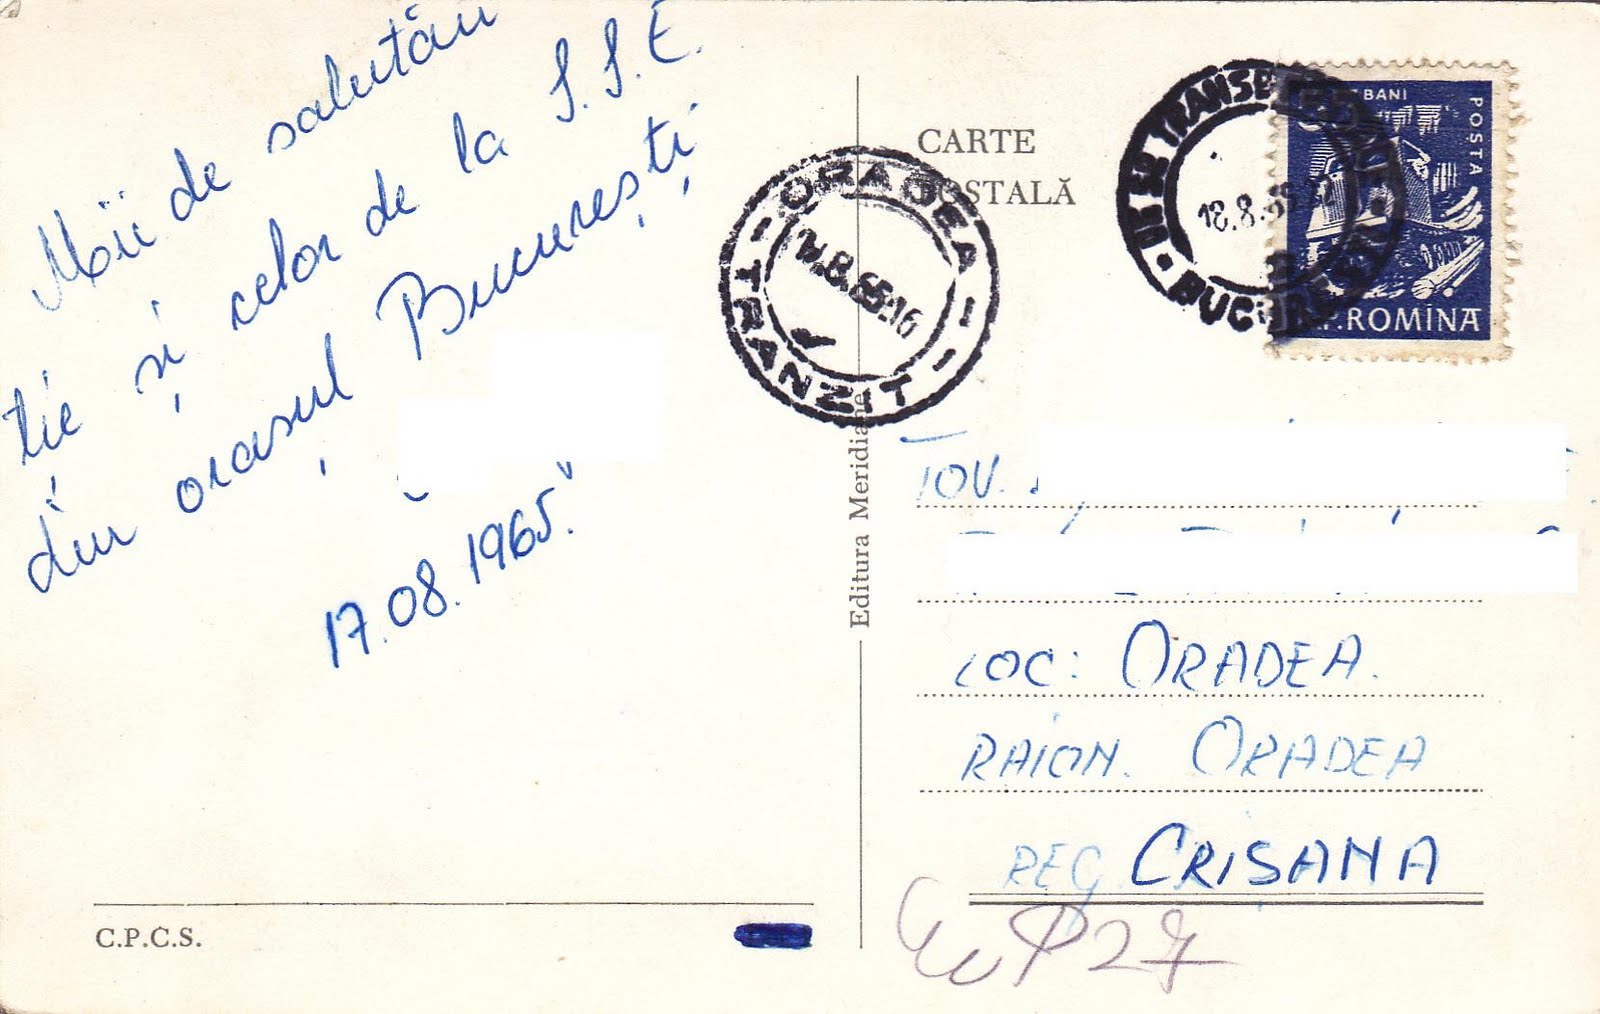 Mii de salutări
ție și celor de la S.S.E.
din orașul București
17.08.1965.
C.P.C.S.
Editura Meridiane
CARTE
POSTALĂ
ORADEA
.8.65.16
TRANZIT
18.8.65
BUCUREȘTI
55 BANI
POSTA
R.P.ROMÎNA
TOV.
LOC: ORADEA.
RAION. ORADEA
REG CRIȘANA
P27